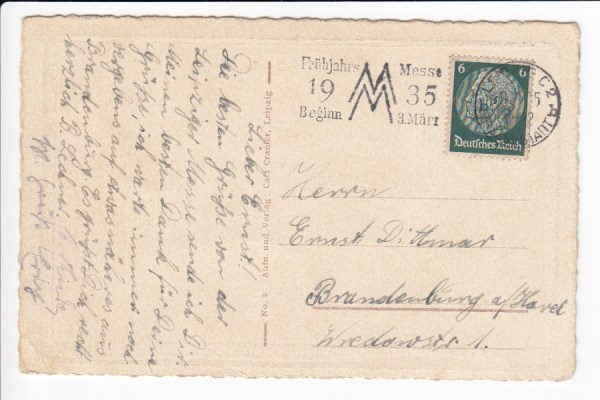 Lieber Ernst!
Die besten Grüße von der
Leipziger Messe sende ich Dir.
Meinen besten Dank für Deine
Grüße, ich warte immer noch
vergebens auf etwas näheres aus
Brandenburg. Es grüßt Dich recht
herzlich B.
Gruß
No. 3 Aufn. und Verlag Carl Cranfer, Leipzig
Frühjahrs Messe
19 35
Beginn 3. März
C 2
6 6
Deutsches Reich
Herrn
Ernst Dittmar
Brandenburg a/Havel
Wredowstr 1.